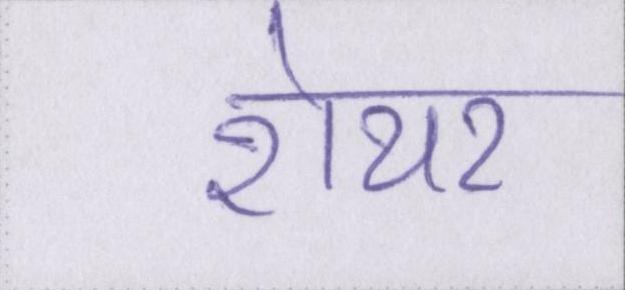 शेयर